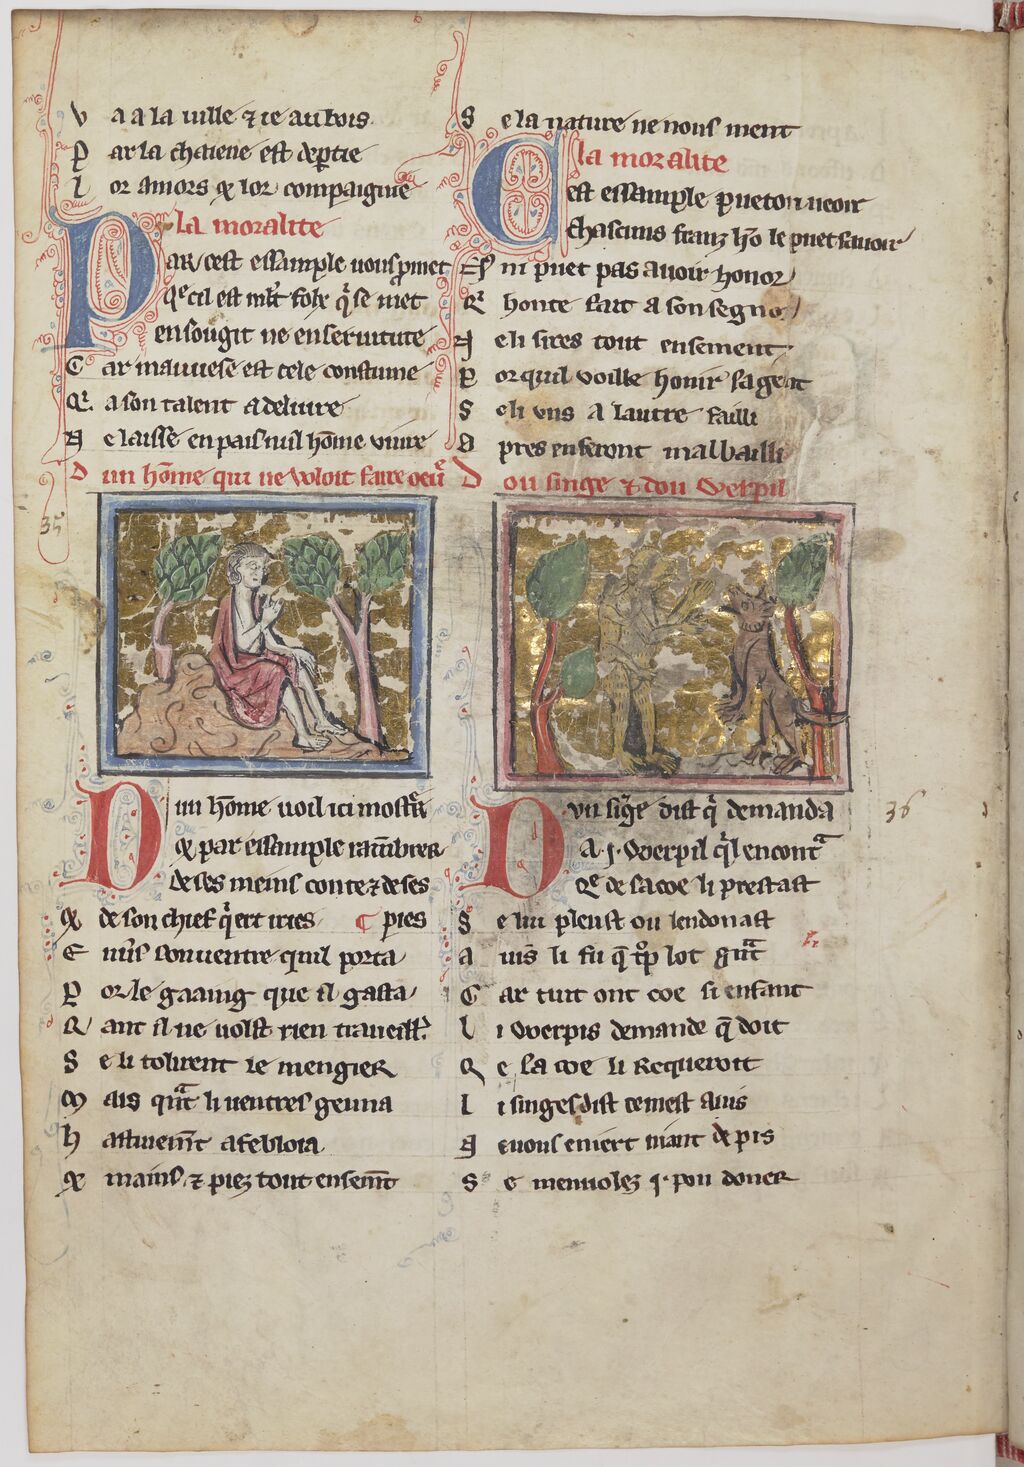 V a a la uille ⁊ ie au bois
P ar la chaiene est deptie
L or amors & lor compaignie
La moralite
P ar cest essample uous pmet
Qe cil est mlt folx q̄ se met
En sougit ne en seruitute
C ar mauuese est cele constume
Qr a son talent a deliure
N e laisse en pais nul hōme uiure
D un hōme qui ne voloit faire oeur̄
35
D un hōme uoil ici mostrā
& par essample ramēbrer
De ses meins contez de ses
& de son chief q̄ ert iries ⸿ pies
E nuīs son uentre quil porta
P or le gaaing que il gasta
Q ant il ne volst rien traueill̄
S e li tolirent le mengier
M ais qant li uentres geuna
h astiuemt̄ afebloia
& mains ⁊ piez tout ensemt̄
S e la nature ne nous ment
La moralite
C est essample puet on ueoir
Chascuns franz hō le puet sauoir
N i puet pas auoir honor
Qr honte fait a son segnor
N e li sires tout ensement
P or quil voille honir sa gent
S e li vns a lautre failli
A pres en seront malbailli
D ou singe ⁊ dou Werpil
36
D vn sīge dist q̄ demanda
A .j. Werpil q̄l encont̄
Qe de sa coe li prestast
S e lui pleust ou len donast
A uis li fu q̄ tp̄ lot gnt̄
C ar tuit ont coe si enfant
L i Werpis demande q̄ doit
Q e la coe li requeroit
L i singes dist ce mest auis
N e uous en iert niant de pis
S e men uolez .j. pou doner